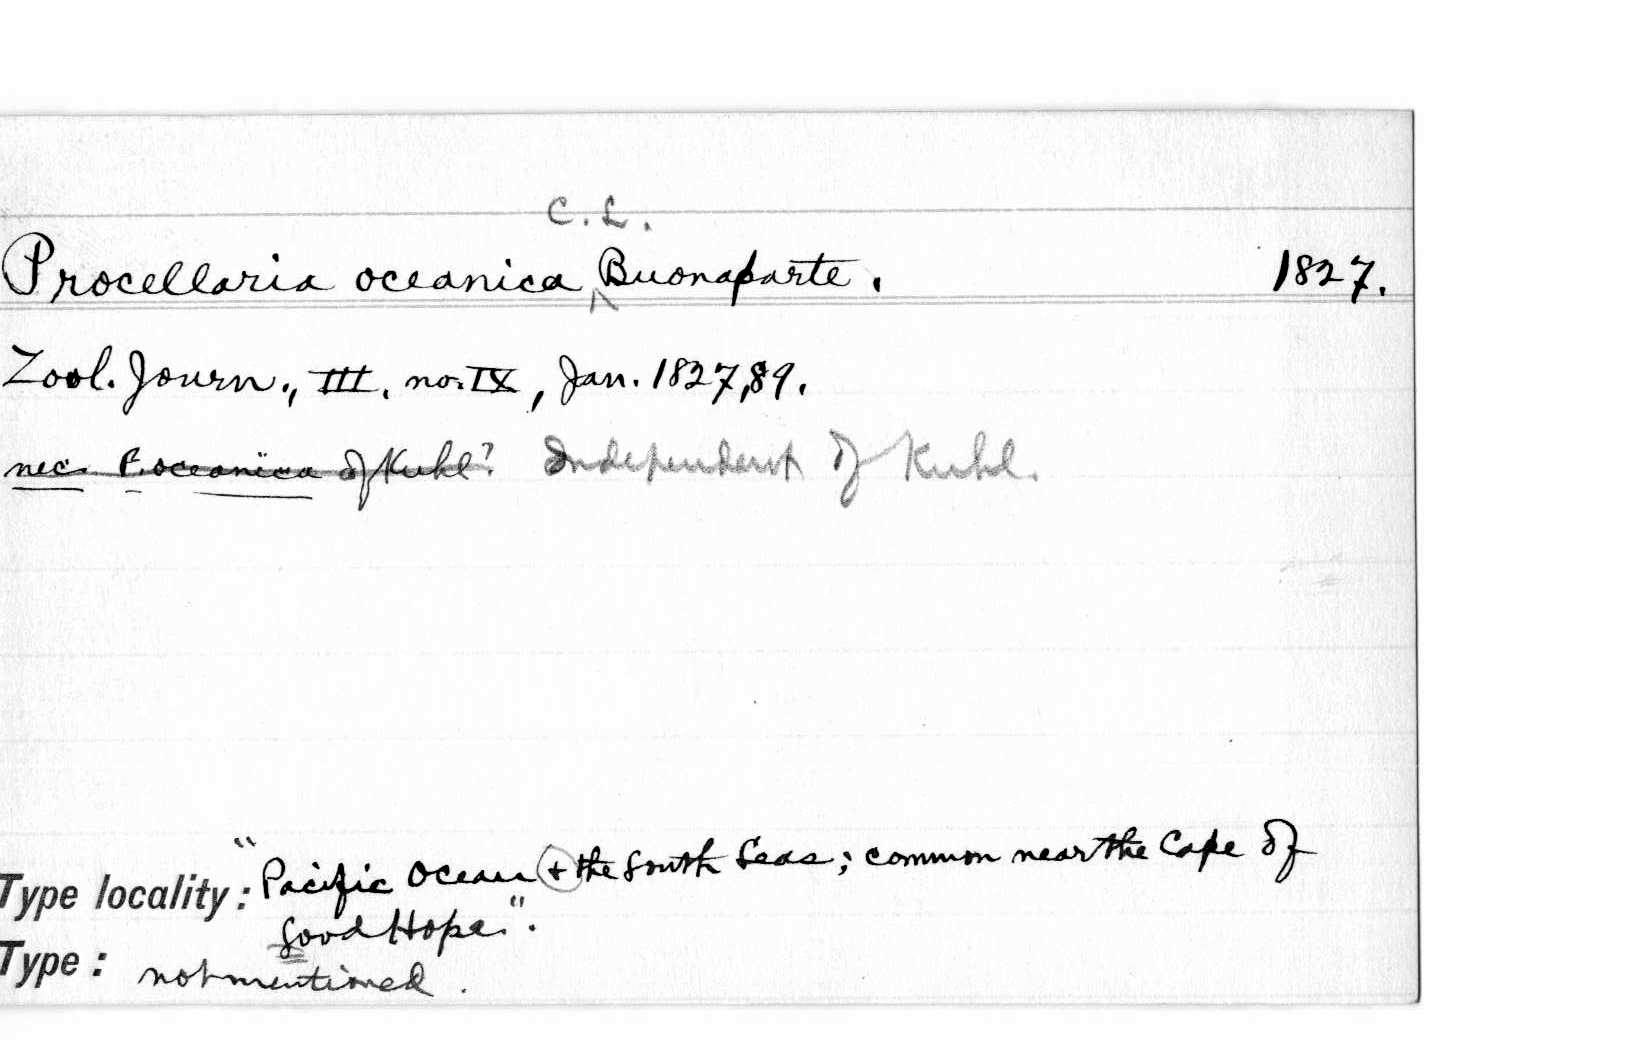 C. L.
Procellaria oceanica ^ Buonaparte. 1827.
Zool. Journ., III, no. IX, Jan. 1827, 89.
nec. P. oceanica of Kuhl? Independent of Kuhl.
Type locality: "Pacific Ocean + the South Seas; common near the Cape of
Good Hope."
Type: not mentioned.